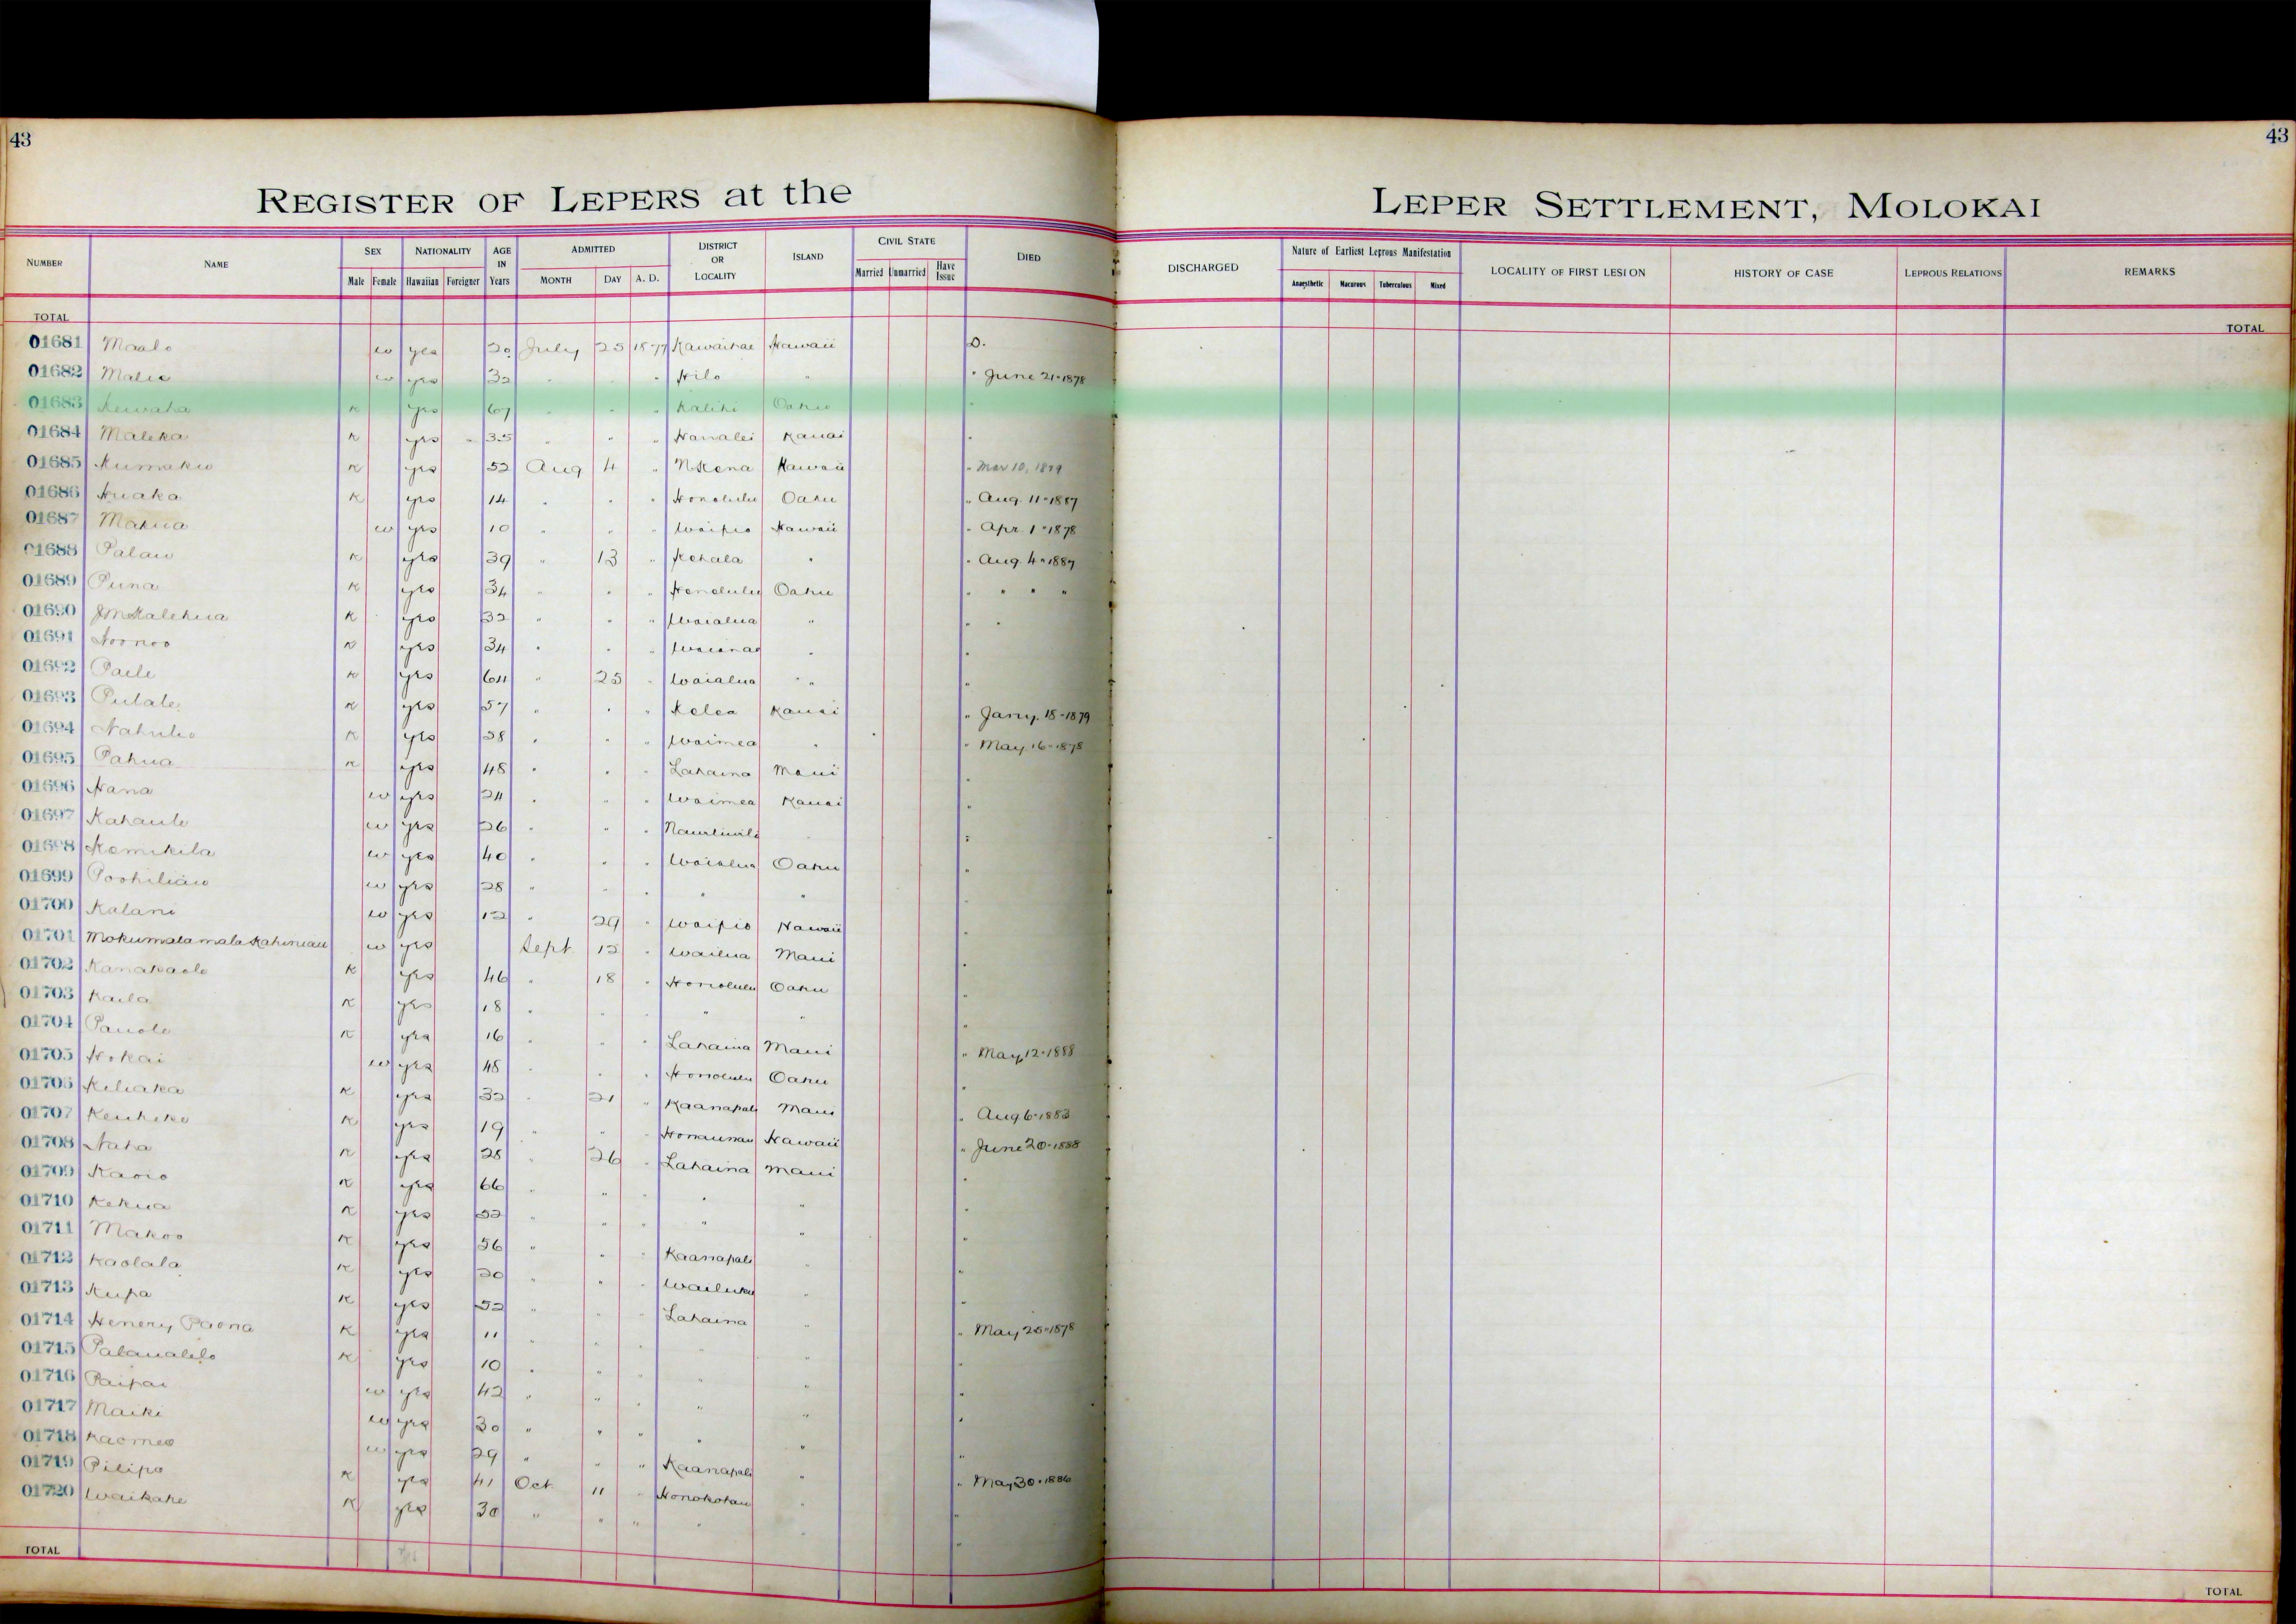 43
43
REGISTER OF LEPERS at the
LEPER SETTLEMENT, MOLOKAI
NUMBER NAME SEX NATIONALITY AGE IN Years ADMITTED DISTRICT OR LOCALITY ISLAND CIVIL STATE DIED DISCHARGED Nature of Earliest Leprous Manifestation LOCALITY OF FIRST LESION HISTORY OF CASE LEPROUS RELATIONS REMARKS
Male Female Hawaiian Foreigner MONTH DAY A. D. Married Unmarried Have Issue Anaesthetic Macurous Tuberculous Mixed
TOTAL TOTAL
01681 Maalo w yes 20 July 25 1877 Kawaihae Hawaii D.
01682 w yes 32 " " " Hilo " " June 21-1878
01683 Kewaha K yes 67 " " " Kalihi Oahu "
01684 Maleka K yes 35 " " " Hanalei Kauai "
01685 Kumaku K yes 52 Aug 4 " N Kona Hawaii " Mar 10, 1879
01686 Huaka K yes 14 " " " Honolulu Oahu " Aug. 11-1887
01687 Makua w yes 10 " " " Waipio Hawaii " Apr. 1-1878
01688 Palau K yes 39 " 13 " Kohala " " Aug. 4-1887
01689 Puna K yes 34 " " " Honolulu Oahu " " " "
01690 J M Kalehua K yes 32 " " " Waialua " " "
01691 Noonoo K yes 34 " " " Waianae " "
01692 Paele K yes 64 " 25 " Waialua " "
01693 Pulale K yes 57 " " " Koloa Kauai " Jany. 18-1879
01694 K yes 28 " " " Waimea " " May. 16-1878
01695 Pahua K yes 48 " " " Lahaina Maui "
01696 Hana w yes 24 " " " Waimea Kauai "
01697 Kahaule w yes 26 " " " Nawiliwili "
01698 Kamikila w yes 40 " " " Waialua Oahu "
01699 Poohiliau w yes 28 " " " " " "
01700 Kalani w yes 12 " 29 " Waipio Hawaii "
01701 Mokumalamala Kahiniau w yes Sept 12 " Wailua Maui "
01702 Kanakaole K yes 46 " 18 " Honolulu Oahu "
01703 Kaila K yes 18 " " " " " "
01704 Pauole K yes 16 " " " Lahaina Maui " May 12-1888
01705 Hokai w yes 48 " " " Honolulu Oahu "
01706 Keliaka K yes 32 " 21 " Kaanapali Maui " Aug 6-1883
01707 Keuheke K yes 19 " " " Honaunau Hawaii " June 20-1888
01708 Naha K yes 28 " 26 " Lahaina Maui "
01709 Kaoio K yes 66 " " " " " "
01710 Kekua K yes 52 " " " " " "
01711 Makoo K yes 56 " " " Kaanapali " "
01712 Kaolala K yes 20 " " " Wailuku " "
01713 Kupa K yes 52 " " " Lahaina " " May 25-1878
01714 Henery Paona K yes 11 " " " " " "
01715 Palaualelo K yes 10 " " " " " "
01716 Paipai w yes 42 " " " " " "
01717 Maiki w yes 30 " " " " " "
01718 Kaomea w yes 29 " " " Kaanapali " " May 30-1886
01719 Pilipo K yes 41 Oct 11 " Honokohau " "
01720 Waikahe K yes 30 " " " " " "
TOTAL TOTAL